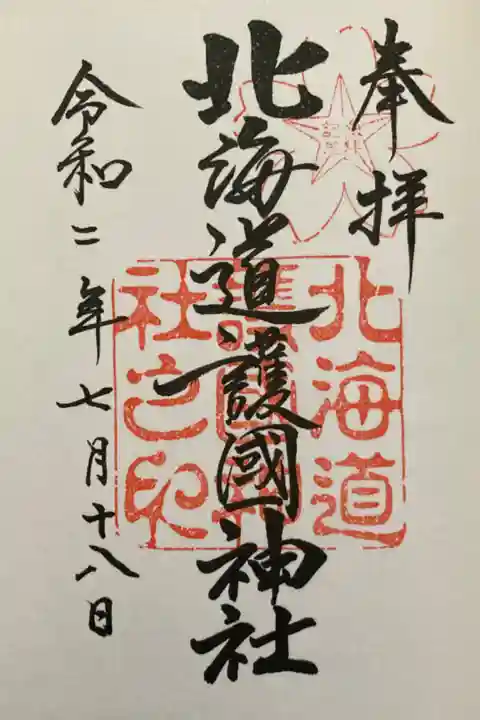 奉拝
北海道護國神社
令和二年七月十八日
北海道
護國神
社之印